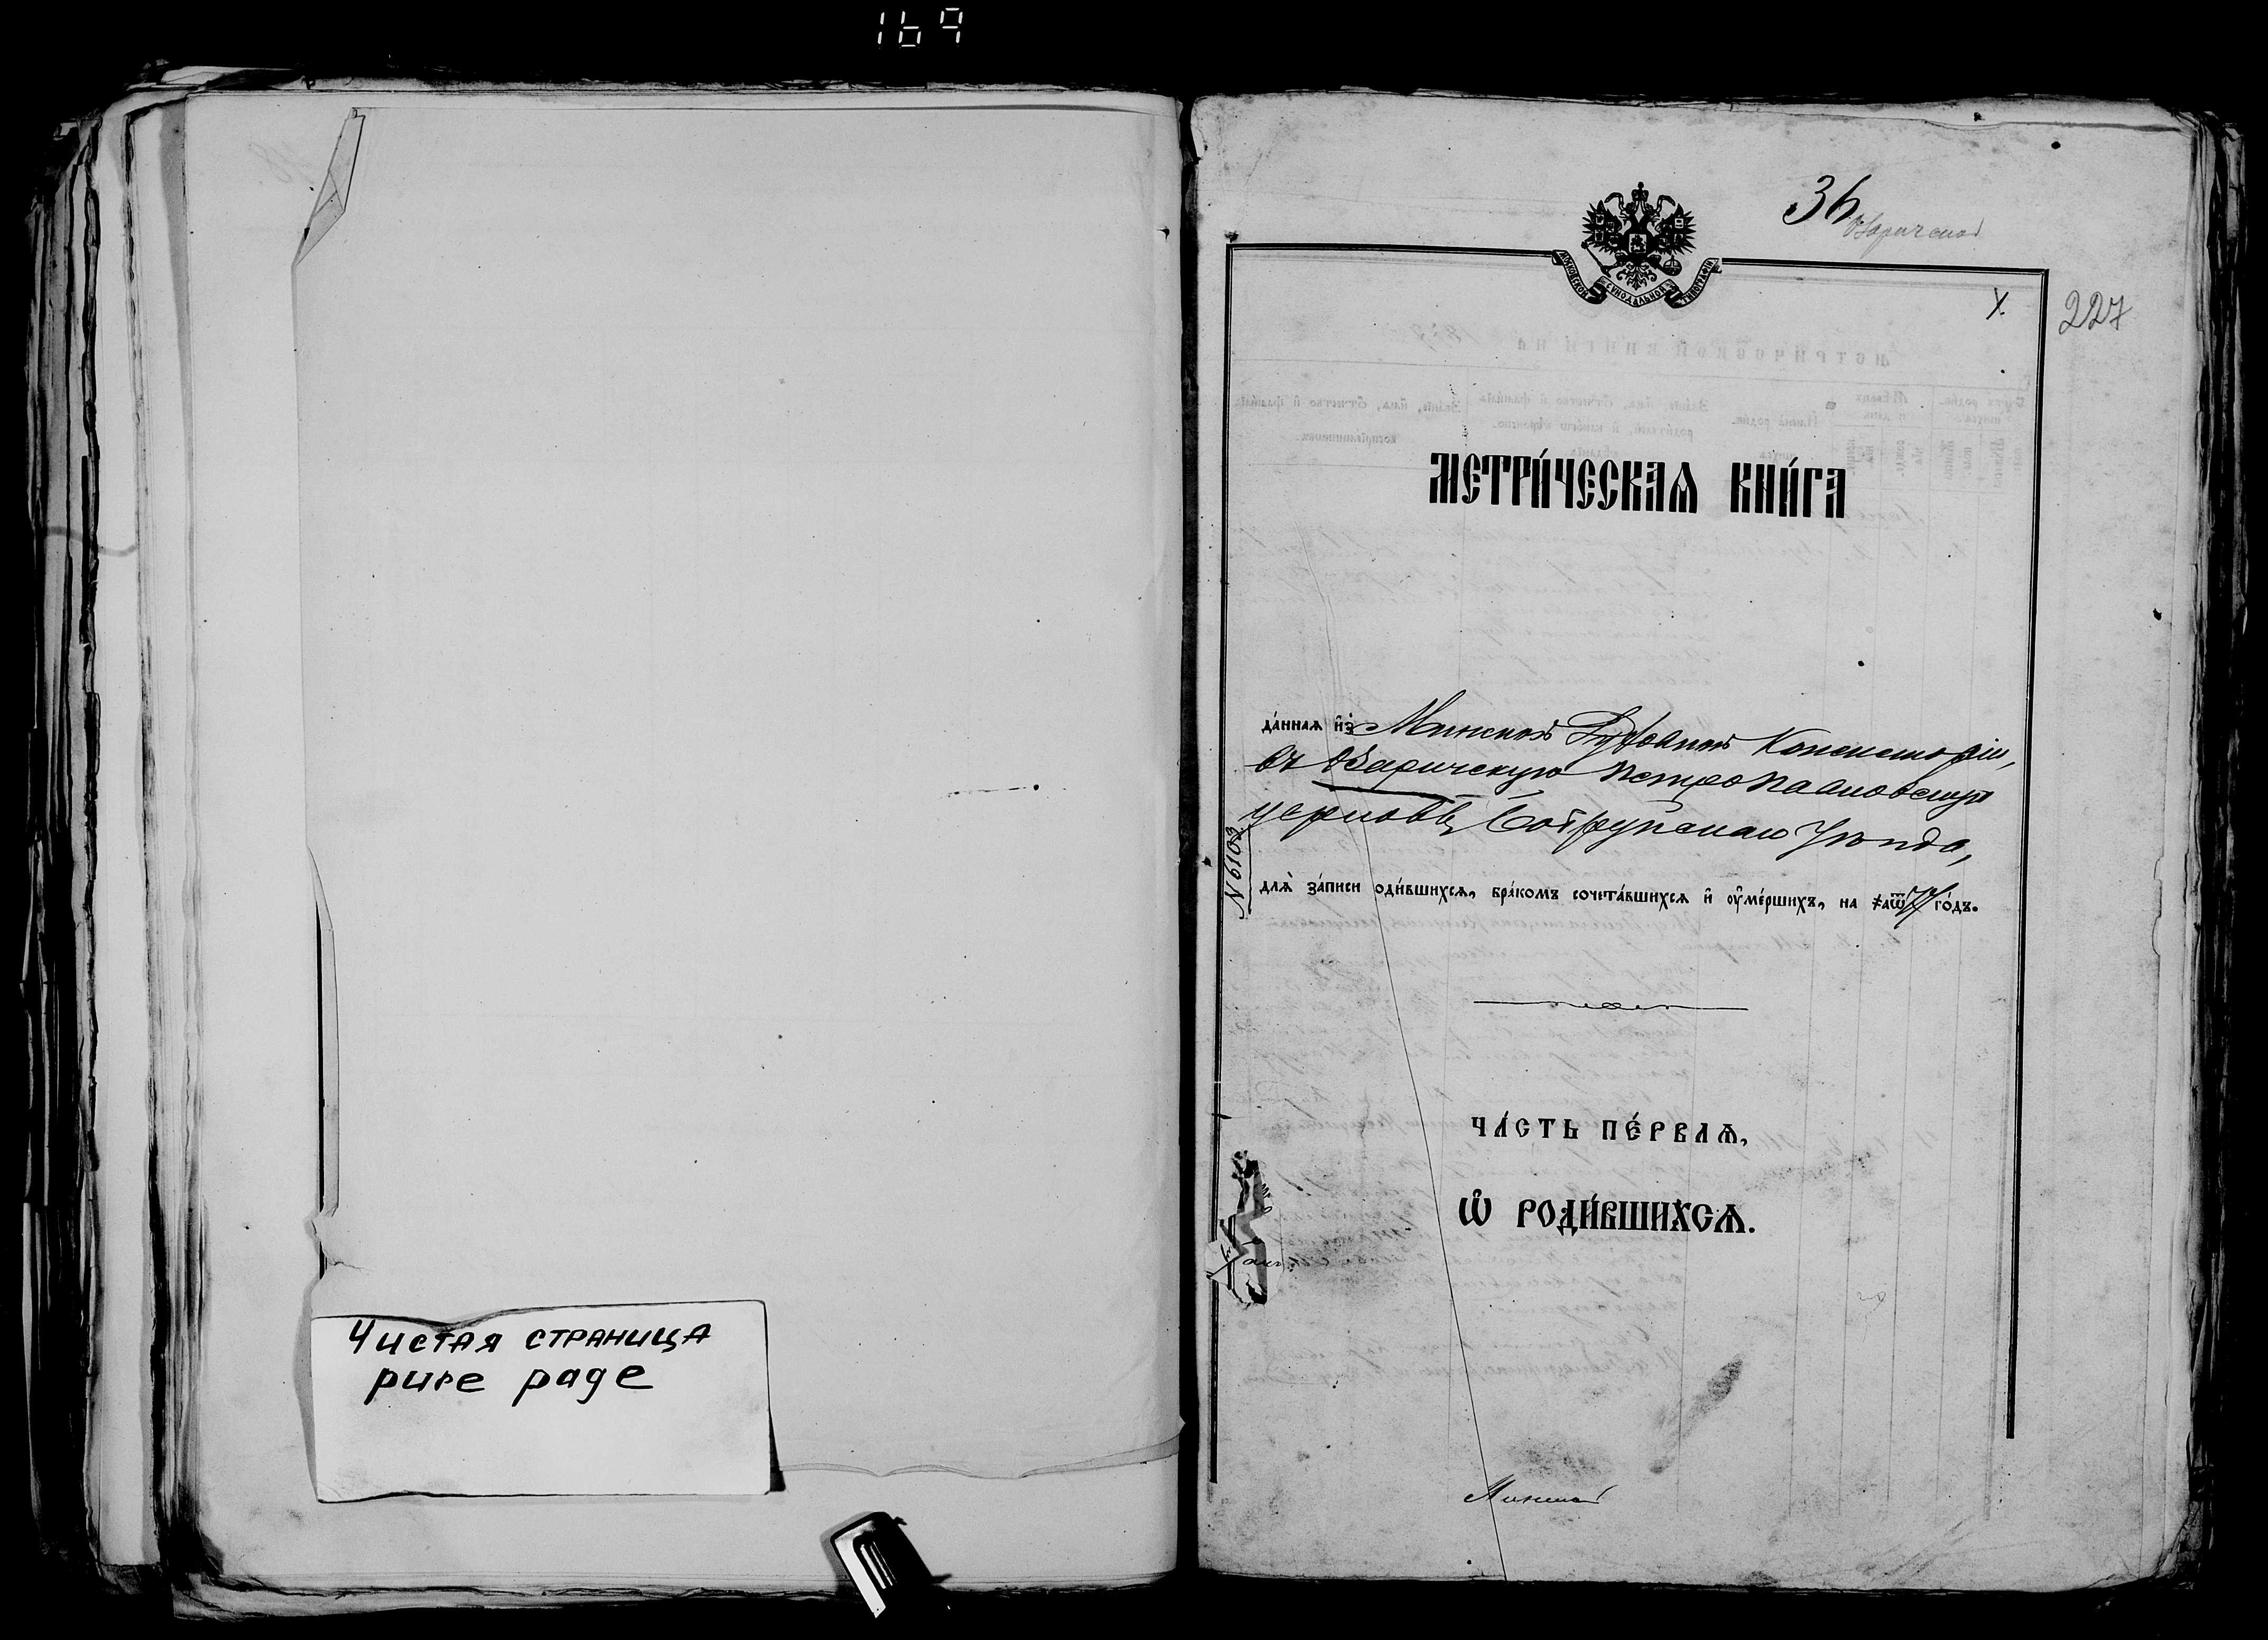 169
Чистая страница
pure page
36
Озаричская
МОСКОВСКОЙ СѴНОДАЛЬНОЙ ТИПОГРАФІИ
227
МЕТРИ́ЧЕСКАѦ КНИ́ГА
да́ннаѧ и҆з̾ Минской Духовной Консисторіи,
въ Озаричскую Петро Павловскую
церковь, Бобруйскаго Уѣзда,
№ 6109
длѧ̀ за́писи роди́вшихсѧ, бра́комъ сочета́вшихсѧ и҆ ᲂу҆ме́ршихъ, на го́дъ.
ЧА́СТЬ ПЕ́РВАѦ,
Ѡ҆ РОДИ́ВШИХСѦ.